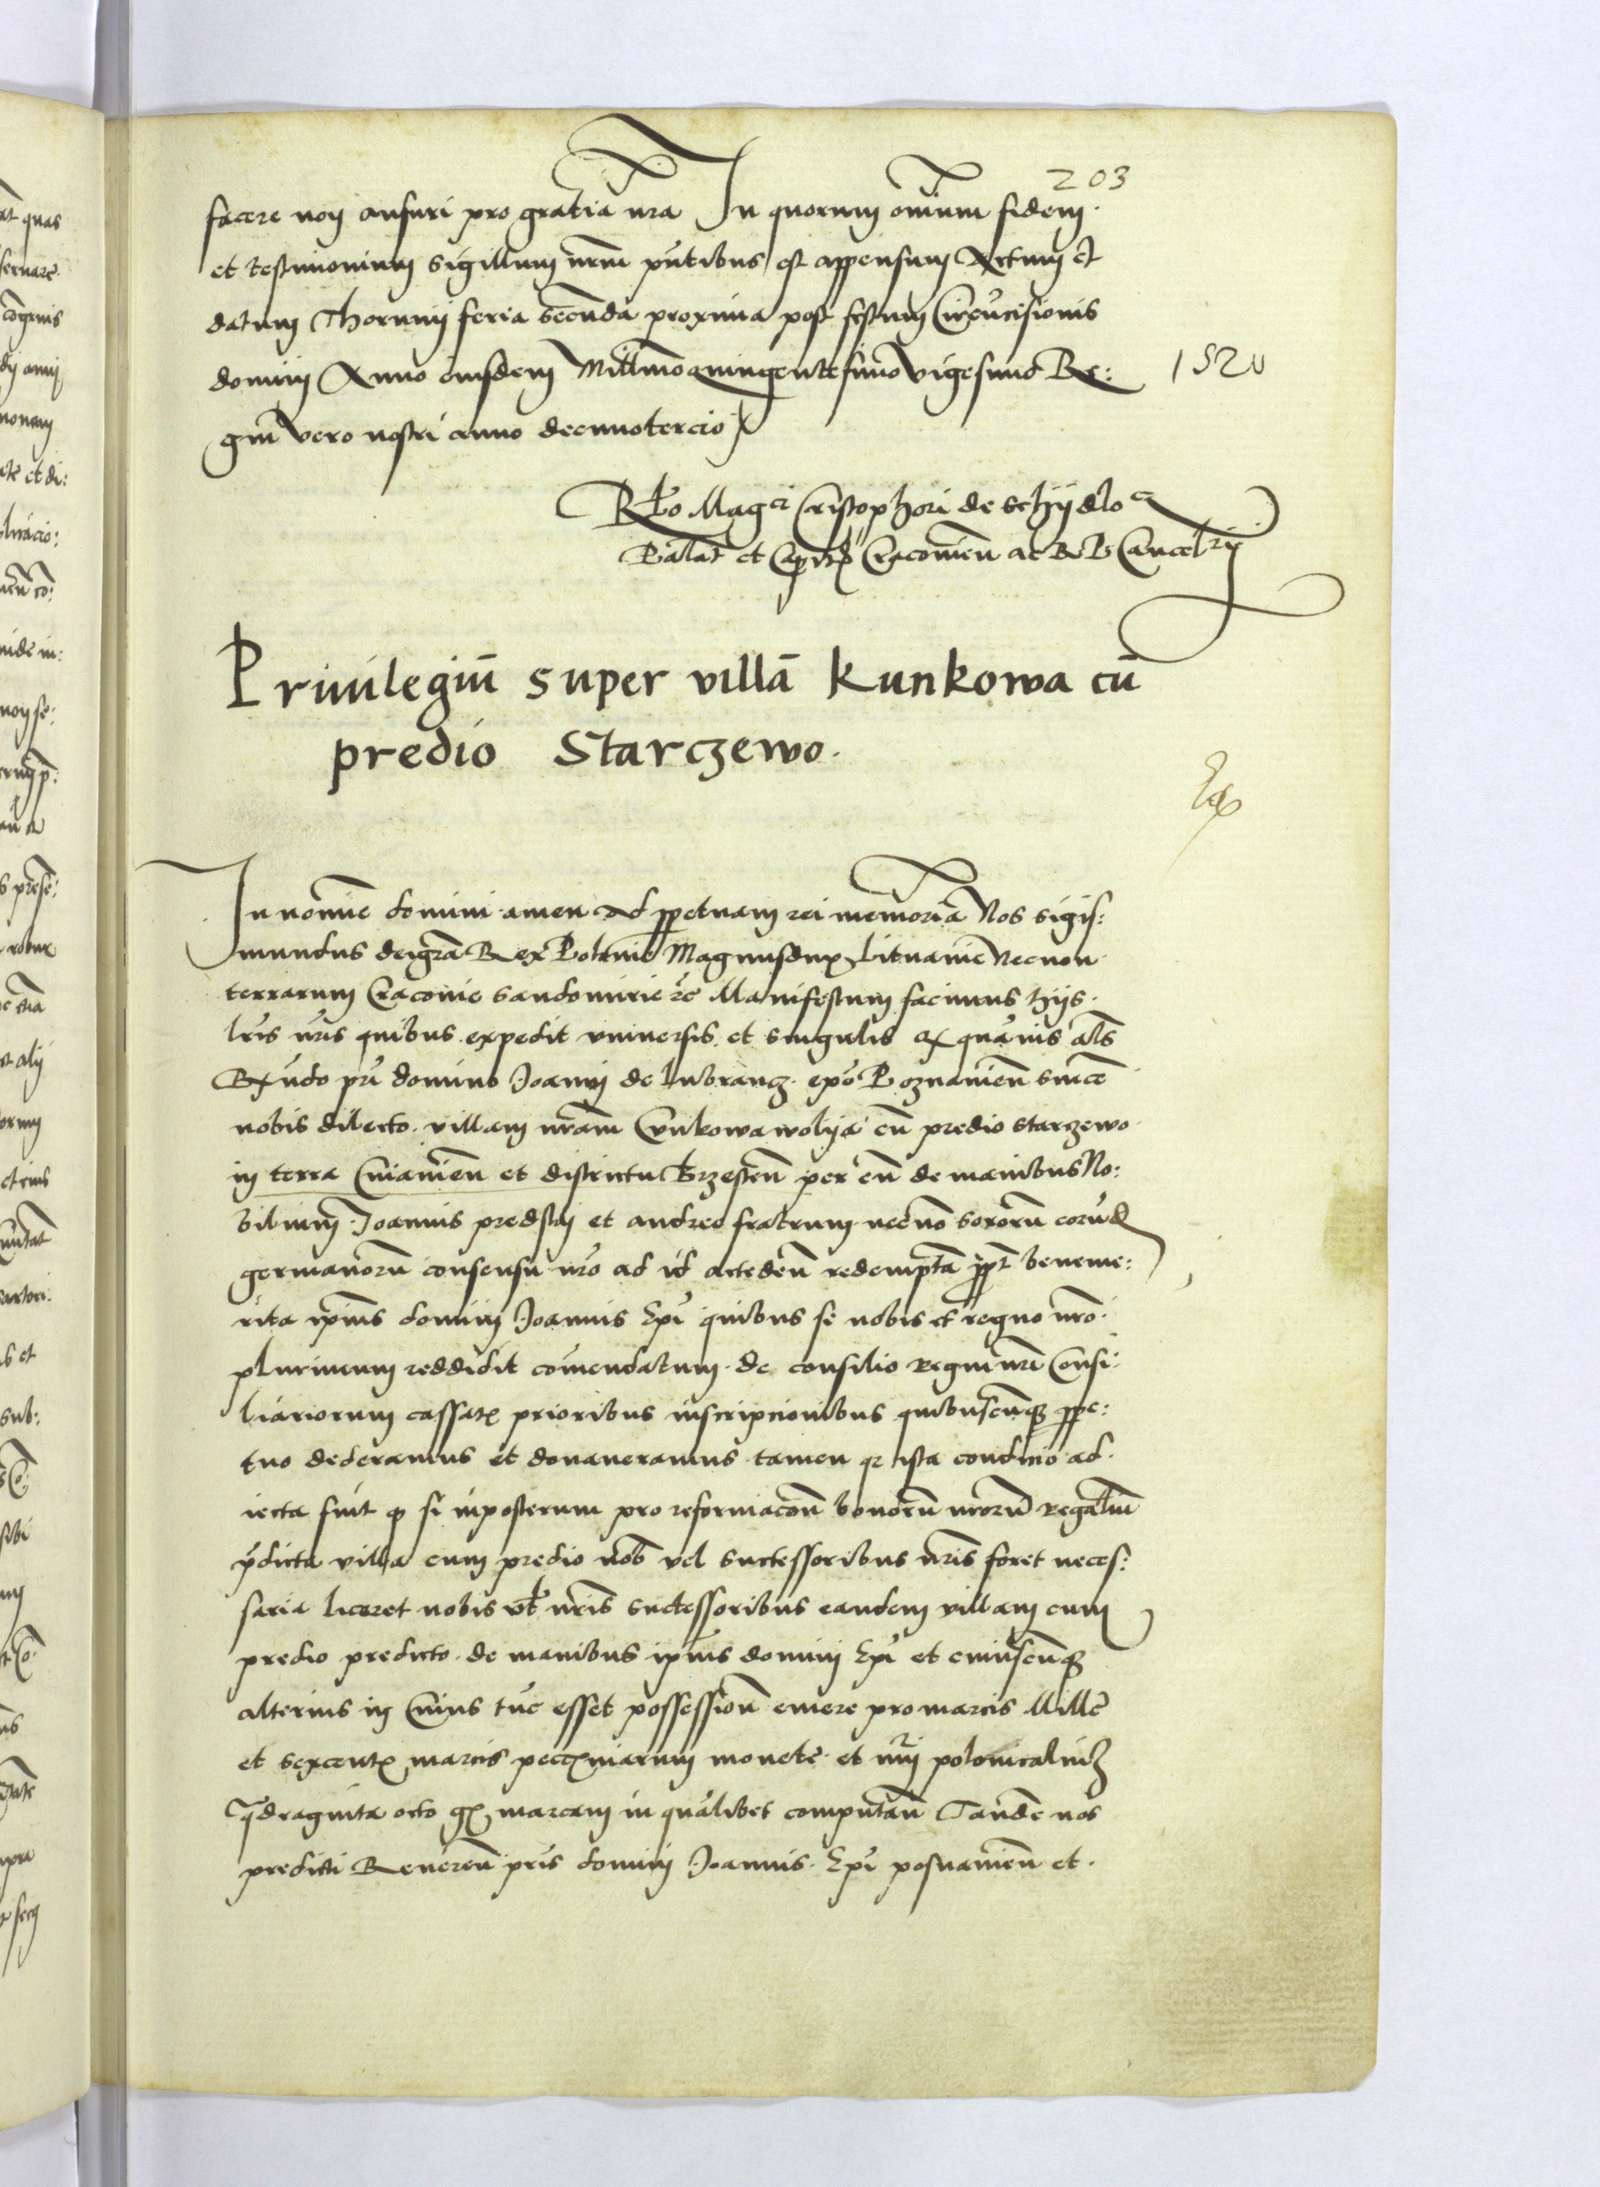 203
facere non ansuri pro gratia nra In quorum omnium fidem
et testimonium sigillum nrm pntibus est appensum Actum et
datum Thorunij feria secunda proxima post festum Circucisionis
domini Anno eiusdem Millmo quingentesimo vigesimo Re:
1520
gni vero nostri anno decimotercio
Rlo Magci Cristophori de Schydlo
Palat et Capit Cracovien ac R P Cancelrij
Privilegiu super villa Kunkowa cu
predio Starczewo.
In nomine domini amen Ad ppetuam rei memoria Nos Sigis:
mundus dei gra Rex Polonie Magnus dux Lituanie Necnon
terrarum Cracovie Sandomirie rc Manifestum facimus hijs
lris nris quibus expedit universis et singulis quavis als
Rndo pri domino Joanni de Lubrancz epo Poznanien since
nobis dilecto villam nram Cunkowawolya cu predio starczewo
in terra Cuiavien et districtu Brzesten per eu de manibus No:
bilium Joannis et andree fratrum necno sororu eorund
germanoru consensu nro ad id acceden redempta ppt beneme:
rita ipius domini Joannis Epi quibus se nobis et regno nro
plurimum reddidit comendatum de consilio regni nri Consi:
liariorum cassatis prioribus inscripcionibus quibuscunq ppe:
tuo dederamus et donaveramus tamen q ista condicio ad
iecta fuit q si inposterum pro reformacon bonoru nroru regaliu
pdicta villa cum predio nob vel successoribus nris foret neces:
saria liceret nobis vel nris successoribus eandem villam cum
predio predicto de manibus ipius domini Epi et cuiuscunq
alterius in cuius tuc esset possession emere pro marcis Mille
et sexcentis marcis pecuniarum monete et nri polonicaliu
qdraginta octo gs marcam in qualibet computan Tande nos
predicti Reveren pris domini Joannis Epi posnanien et